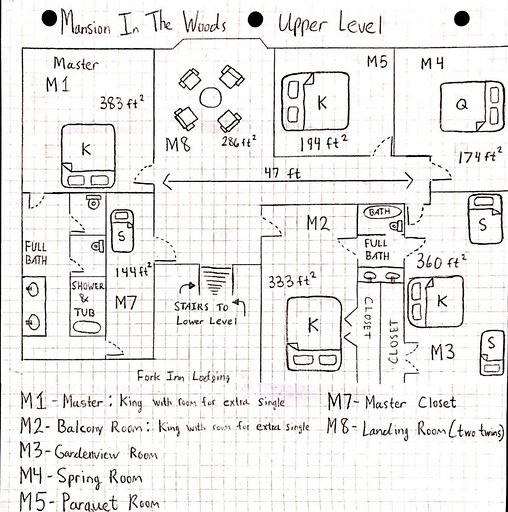 Mansion In The Woods Upper Level
Master
M1
383 ft²
K
M8
286 ft²
M5
K
194 ft²
M4
Q
174 ft²
47 ft
FULL
BATH
S
144 ft²
SHOWER
&
TUB
M7
STAIRS TO
Lower Level
M2
333 ft²
K
BATH
FULL
BATH
CLOSET
CLOSET
S
360 ft²
K
M3
S
Fork Inn Lodging
M1 - Master: King with room for extra single
M2 - Balcony Room: King with room for extra single
M3 - Gardenview Room
M4 - Spring Room
M5 - Parquet Room
M7 - Master Closet
M8 - Landing Room (two twins)